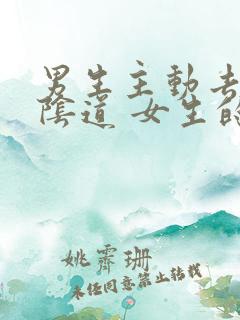 男生主動去
陰道 女生的
姚霽珊
未经同意禁止转载